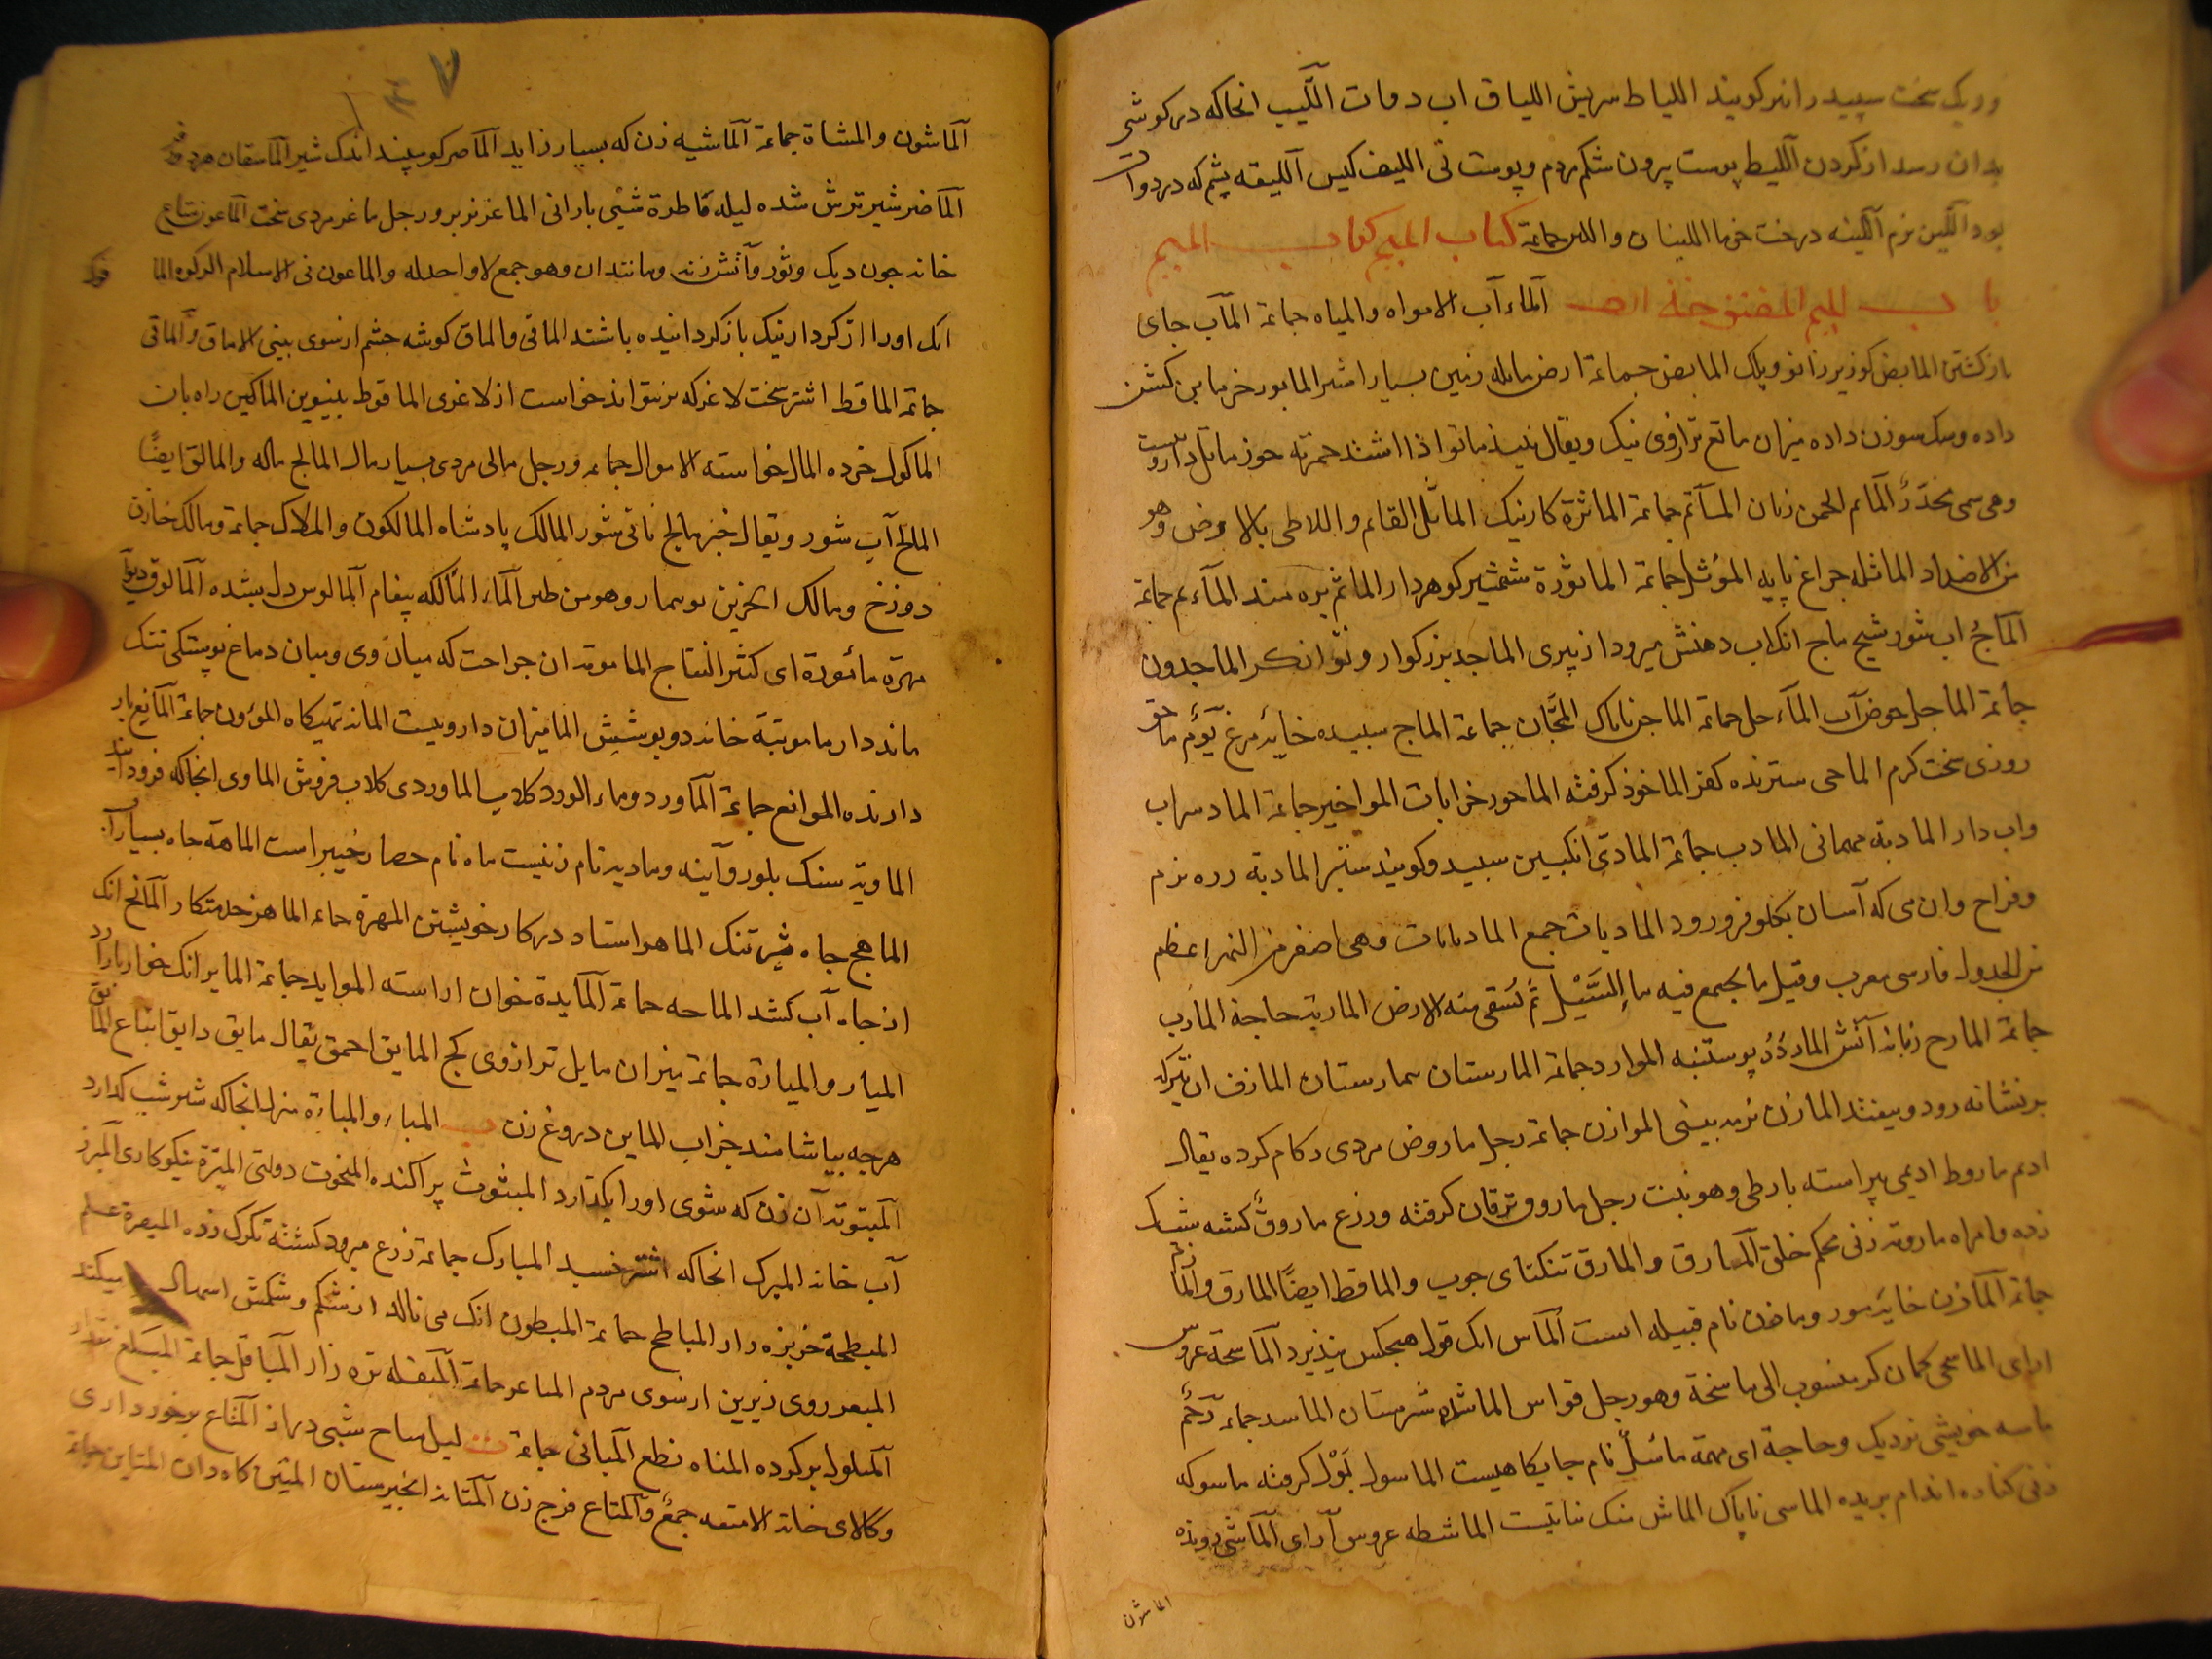 وریک سخت سپید را نیز کویند اللیاط سریش اللیاق اب دوات اللّیب انجاکه در کوشی
بدان رسد از کردن اللیط پوست پرون شکم مردم و پوست نی اللیف کیس اللیقه پشم که در دوات
بود اللّین نرم اللینه درخت خرما اللینان واللین جماعة کتاب المیم کتاب المیم
باب المیم المفتوحة الماء آب الامواه والمیاه جماعة المآب جای
بازکشتن المابض کو زیر زانو وپلک المابض جماعة ارض مابله زمین بسیار اشتر المابور خرما بن کشن
داده وسک سوزن داده میزان ماتع ترازوی نیک ویقال نبیذ ماتع اذا اشتد حمرته جوز ماثل داروست
وهی سمی مخدّرٌ المأتم انجمن زنان المآتم جماعة الماثرة کار نیک الماثل القائم واللاطی بالارض وهو
من الاضداد الماثله چراغ پایه المؤثل جماعة الماثورة شمشیر کوهردار الماثم بزه مند المآثم جماعة
الماجُ اب شور شیخ ماج انک اب دهنش میرود از پیری الماجد بزرکوار وتوانکر الماجدون
جماعة الماجل حوض آب المآجل جماعة الماجن ناباک المجّان جماعة الماح سپیده خایه مرغ یومٌ ماحق
روزی سخت کرم الماحی سترنده کفر الماخوذ کرفته الماخور خرابات المواخیر جماعة الماد سراب
واب دار المادبة مهمانی المادب جماعة الماذی انکبین سپید وکویند شیر الماذیة زره نرم
وفراخ وان می که آسان بکلو فرو رود الماذیات جمع الماذیانات وهی اصغر من النهر اعظم
من الجدول فارسی معرب وقیل ما یجمع فیه ماء السَّیْل ثم تُسقی منه الارض الماربة حاجة المآرب
جماعة المارج زبانه آتش المارد دُ پوستنبه الموارد جماعة المارستان بیمارستان المارق ان تیر که
برنشانه رود وبیفتد المارن نرمه بینی الموارن جماعة رجل ماروض مردی زکام کرده یقال
ادیم ماروط ادیمی پیراسته بارطی وهو نبت رجل ماروق یرقان کرفته وزرع ماروقٌ کشته شیک
زده وامراه مارویه زنی محکم خلق المارق والمازق تنکنای حرب والماقط ایضًا المازق والمازم
جماعة المازن خایه مور ومازن نام قبیله است الماس انک قول هیچکس نپذیرد الماسخة عروس
ارای الماسخی کمان کر منسوب الی ماسخة وهو رجل قواس الماسدة شیرستان الماسد جماعة رحمٌ
ماسه خویشی نزدیک وحاجة ای مهمة ماسلٌ نام جایکاهیست الماسول بَوْل کرفته ماسوکه
زنی کناره اندام بریده الماسی ناپاک الماش منک نباتیست الماشطه عروس آرای الماشی رونده
الماشون
٧
الماشون والمشاة جماعة الماشیه زن که بسیار زاید الماصر کوسپند اندک شیر الماضغان هر دو
الماضر شیر ترش شده لیلة ماطرة شبی بارانی الماعز نر بز ورجل ماعز مردی سخت الماعون متاع
خانه چون دیک وتور وآتش زنه ومانندان وهو جمع لا واحد له والماعون فی الاسلام الزکوة الما
انک او را از کردار نیک بازکردانیده باشند الماقی والماق کوشه چشم از سوی بینی الاماق والماقی
جماعة الماقط اشتر سخت لاغر که برنتواند خواست از لاغری الماقوط پنیوین الماکین راه بان
الماکول خرده المال خواسته الاموال جماعة ورجل مالی مردی بسیار مال المالج ماله والمالق ایضًا
المالح آب شور ویقال خبز مالح نانی شور المالک پادشاه المالکون والملاک جماعة ومالک خازن
دوزخ ومالک الحزین بوتیمار وهو من طیر الماء المألکه پیغام المالوس دل بشده المالوق دیوانه
مهرة مأمورة ای کثیر النتاج الماموته ان جراحت که میان وی ومیان دماغ پوستکی تنک
ماند دار ماموتة خانه دو پوشش المامیران دارویست المانه تهیکاه المؤون جماعة المانع باز
دارنده الموانع جماعة الماورد وماء الورد کلاب الماوردی کلاب فروش الماوی انجاکه فرود آیند
الماویه سنک بلور وآینه وماویه نام زنیست ماه نام حصار خیبر است الماهة چاه بسیار آب
الماهج چاه شیر تنک الماهر استاد در کار خویشتن المهرة جماعة الماهن خدمتکار المایح انک
از چاه آب کشد الماحه جماعة المایدة خوان اراسته المواید جماعة المایر انک خواربار آرد
المیار والمیارة جماعة میزان مایل ترازوی کج المایق احمق یقال مایق دایق اتباع المایع
هرچه بیاشامند جزاب الماین دروغ زن ب المباء والمباءة منزل انجاکه شتر شب کذارد
المبتوته آن زن که شوی او را بکذارد المبثوث پراکنده المبخوت دولتی المبرّة نیکوکاری المبرز
آب خانه المبرک انجاکه اشتر خسبد المبارک جماعة زرع مبرود کشته تکرک زده المبصرة علم
المبطخة خربزه زار المباطخ جماعة المبطون انک می نالد از شکم وشکمش اسهال میکند
المبعر روی زیرین از سوی مردم المباعر جماعة المبقله تره زار المباقل جماعة المبلغ مقدار
المبلول بر کرده المبناه نطع المبانی جماعة ت لیل متاح شبی دراز المتاع برخورداری
وکالای خانه الامتعه جمعٌ والمتاع فرج زن المتانه انجیرستان المتبن کاه دان المتابن جماعة